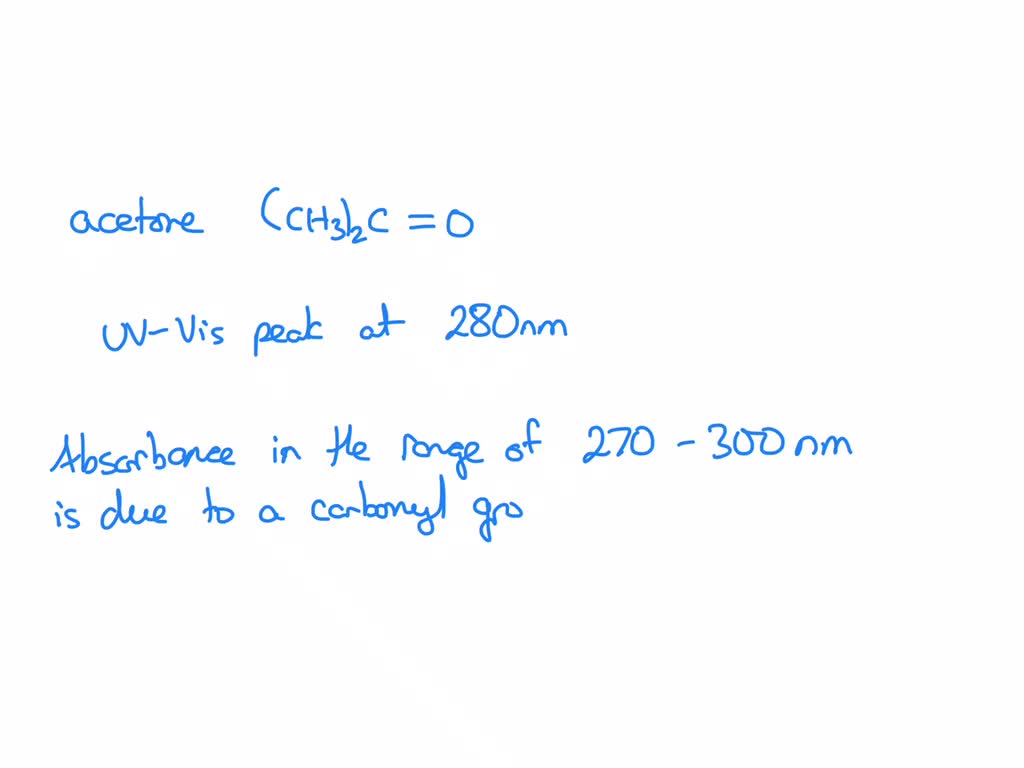 acetone (CH3)2C=O
UV-Vis peak at 280nm
Absorbance in the range of 270 - 300 nm
is due to a carbonyl gro